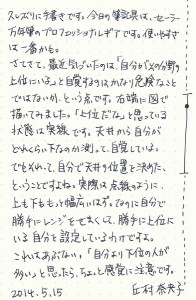 スレズリに手書きです。今日の筆記具は、セーラー
万年筆のプロフェッショナルギアです。使いやすさ
は一番かも。
さてさて、最近気づいたのは、「自分がXの分野の
上位にいる」と自覚するのはかなり危険なこと
ではないか、という点です。右端に図で
描いてみました。「上位だな」と思っている
状態は実線です。天井から自分が
どれくらい下なのか測って、自覚している。
でもそれって、自分で天井の位置を決めた、
ということですよね。実際は点線のように、
上も下ももっと幅広いはず。なのに自分で
勝手にレンジをせまくして、勝手に上位に
いる自分を設定しているわけですよ。
これはあぶない。「自分より下位の人が
多い」と思ったら、ちょっと感覚に注意です。
2014.5.15
丘村奈央子